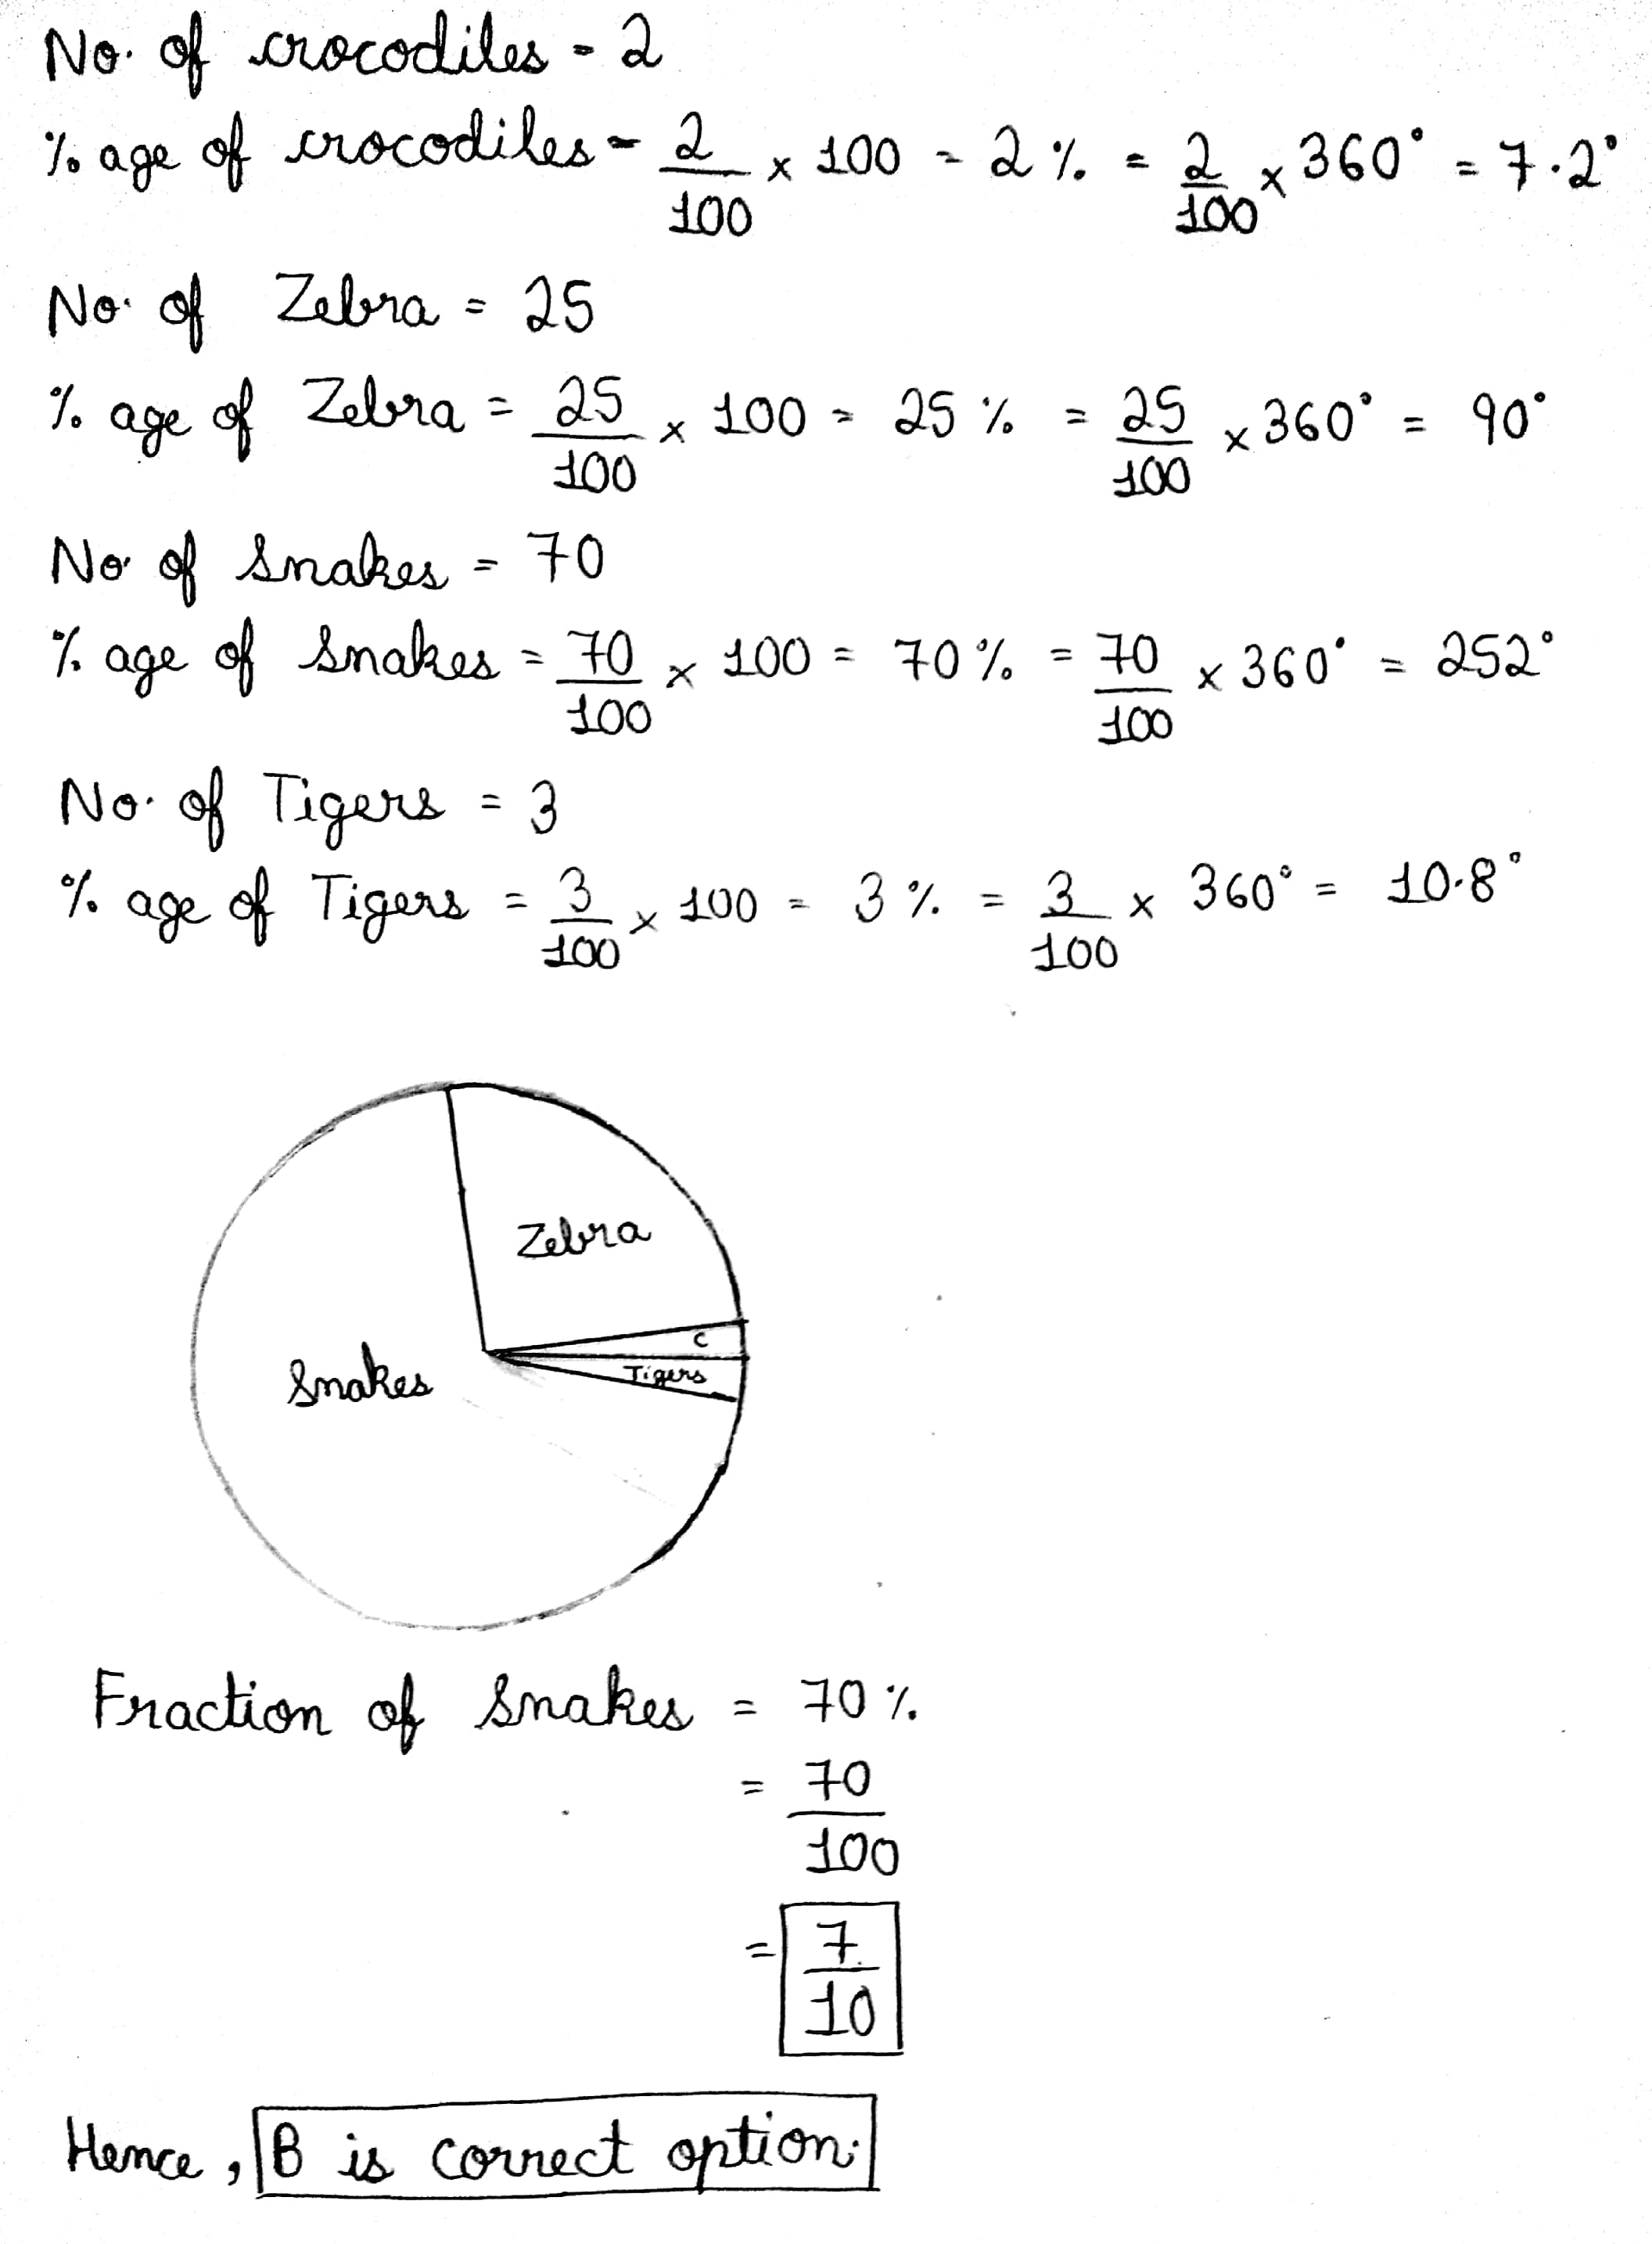 No. of crocodiles = 2
% age of crocodiles = 2/100 × 100 = 2 % = 2/100 × 360° = 7.2°
No. of Zebra = 25
% age of Zebra = 25/100 × 100 = 25 % = 25/100 × 360° = 90°
No. of Snakes = 70
% age of Snakes = 70/100 × 100 = 70 % = 70/100 × 360° = 252°
No. of Tigers = 3
% age of Tigers = 3/100 × 100 = 3 % = 3/100 × 360° = 10.8°
Zebra
C
Tigers
Snakes
Fraction of Snakes = 70 %
= 70/100
= 7/10
Hence, B is correct option.